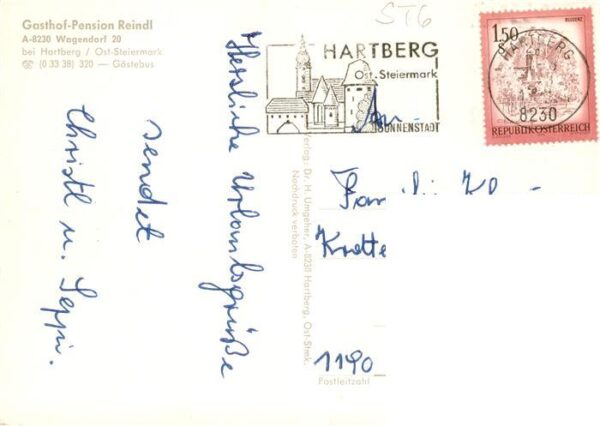 Gasthof-Pension Reindl
A-8230 Wagendorf 20
bei Hartberg / Ost-Steiermark
☎ (0 33 38) 320 — Gästebus
ST6
HARTBERG
Ost-Steiermark
SONNENSTADT
1.50
S
BLUDENZ
HARTBERG
8230
REPUBLIK ÖSTERREICH
Herzliche Urlaubsgrüße
sendet
Christl u. Seppi.
Verlag: Dr. H. Umgeher, A-8230 Hartberg, Ost-Stmk.
Nachdruck verboten
An
1190
Postleitzahl